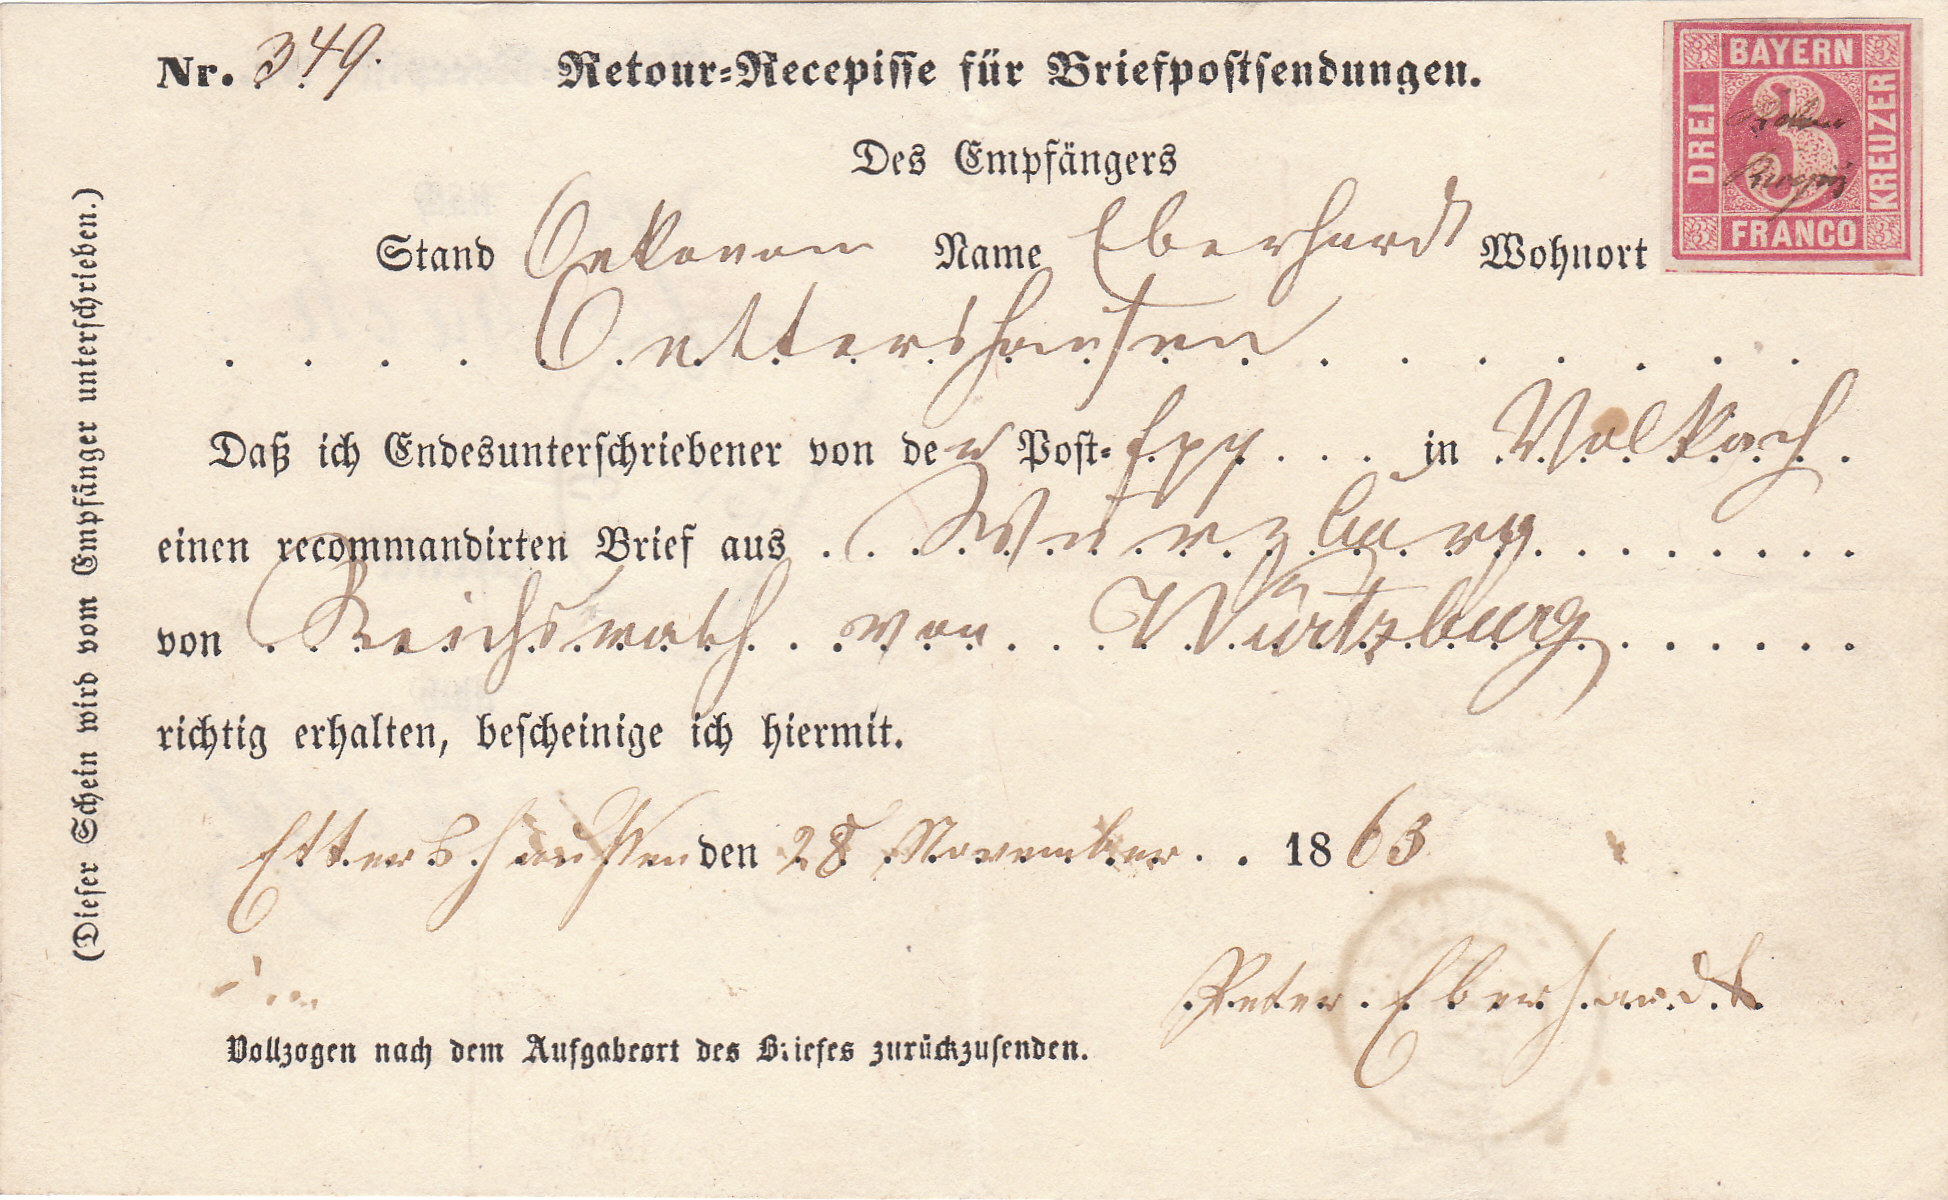 Nr. 349.
Retour-Recepisse für Briefpostsendungen.
BAYERN
DREI
3
KREUZER
FRANCO
Des Empfängers
Stand Oekonom Name Eberhardt Wohnort
Oettershausen
Daß ich Endesunterschriebener von der Post-Exp. in Volkach
einen recommandirten Brief aus Würzburg
von Reichsrath von Würtzburg
richtig erhalten, bescheinige ich hiermit.
Ettershaußen den 28 November 1863
Peter Eberhardt
Vollzogen nach dem Aufgabeort des Briefes zurückzusenden.
(Dieser Schein wird vom Empfänger unterschrieben.)